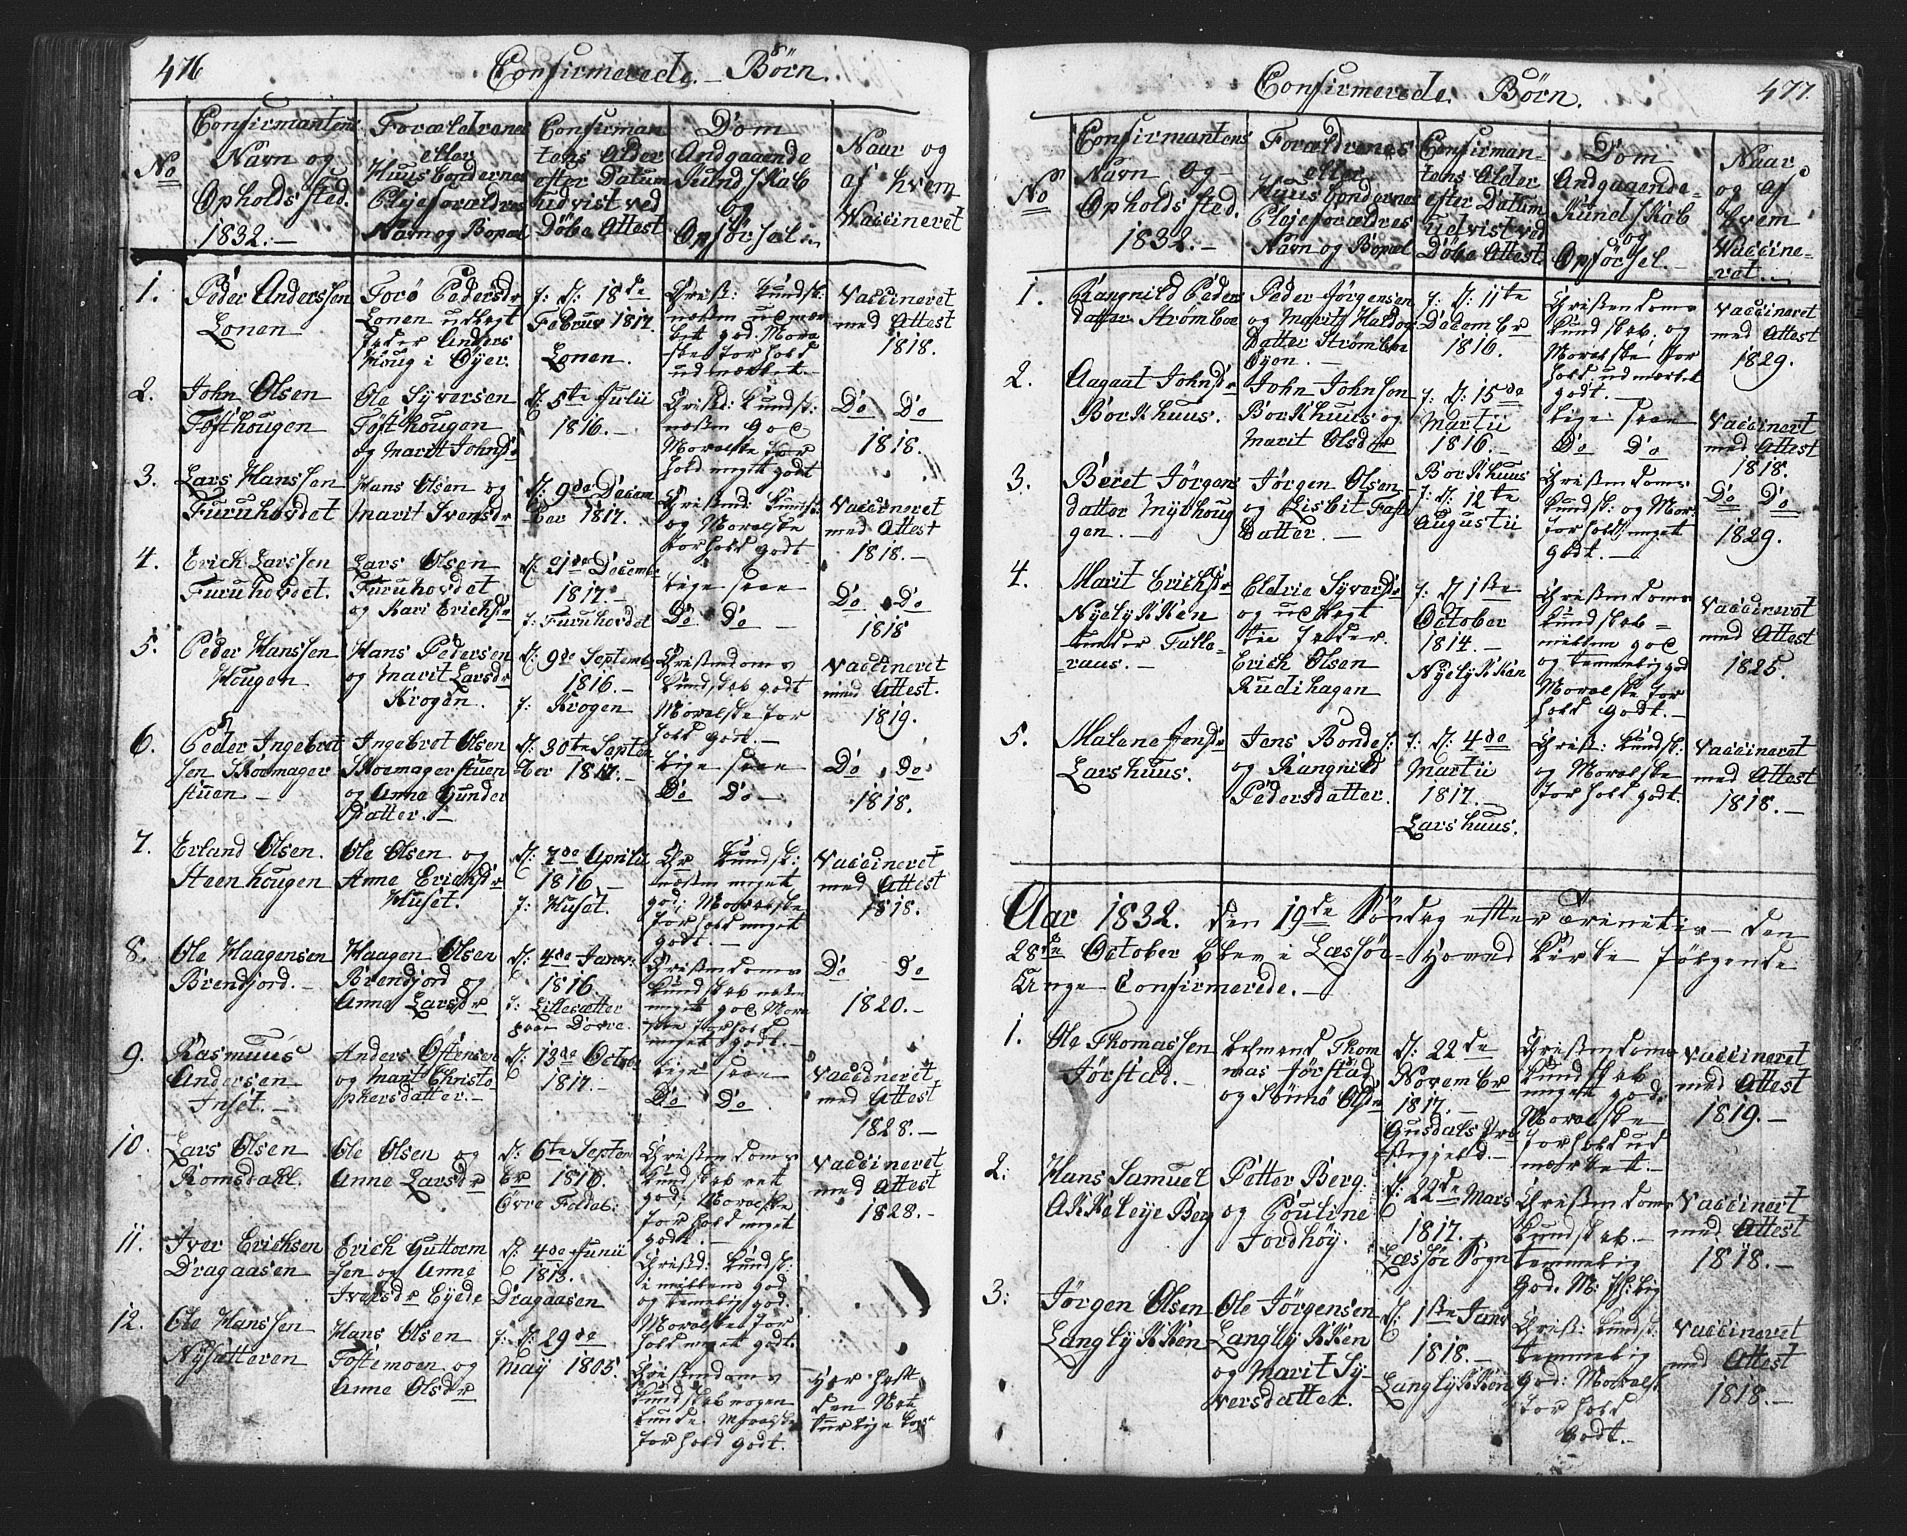 476
Confirmerede Börn.
No
Confirmantens
Navn og
Opholdssted.
1832.
Forældrenes
eller
Huusbondernes
Plejeforældres
Navn og Bopæl
Confirman
tens Alder
efter Datum
udvist ved
Döbe Attest
Dom
Andgaaende
Kundskab
og
Opførsel
Naar og
af hvem
Vaccineret
1.
Peder Anderssen
Lonen
Torø Pedersdr
Lonen udlagt
Fader Anders
Houg i Øyer.
f: d: 18de
Februar 1817.
Lonen.
Christ: Kundsk:
næsten udmær
ket god. Mora
ske Forhold
udmærket
Vaccineret
med Attest
1818.
2.
John Olsen
Tofthougen
Ole Syversen
Tofthougen
og Marit Johnsdr
d: 5te Julii
1816.
Christd: Kundsk:
næsten god
Moralske For
hold meget godt
Do Do
1818.
3.
Lars Hanssen
Furuhovdet
Hans Olsen og
Marit Svensdr
d: 9de Decem
ber 1817.
Christend: Kundsk:
og Moralske
Forhold godt
Vaccineret
med Attest
1818.
4.
Erich Larssen
Furuhovdet.
Lars Olsen
Furuhovdet
og Kari Erichsdr
d: 21de Decembr
1817.
f: Furuhovdet
Lige saa
Do Do
Do Do
1818
5.
Peder Hanssen
Hougen
Hans Pedersen
og Marit Larsdr
Krogen.
d: 9de Septembr
1816.
f: Krogen
Christendoms
Kundskab godt
Moralske For
hold godt.
Vaccineret
med Attest.
1819.
6.
Peder Ingebret
sen Skomager
stuen
Ingebret Olsen
Skomagerstuen
og Anne Gunder
Datter.
d: 30te Septem
ber 1817.
Lige saa
Do Do
Do Do
1818.
7.
Erland Olsen.
Steenhougen
Ole Olsen og
Anne Erichsdr
Huset.
d: 7de Aprili
1816
f: Huset.
Chr Kundsk:
næsten meget
god: Moralske
Forhold meget
godt.
Vaccineret
med Attest
1818.
8.
Ole Haagensen
Brendjord.
Haagen Olsen
Brendjord og
Anne Larsdr
d: 4de Januar
1816
f: Lillesætter
paa Dovre.
Christendoms
Kundskab
meget god Mora
ske Forhold
meget godt.
Do Do
1820.
9.
Rasmuus
Andersen
Inset.
Anders Østensen
og Marit Christo
phersdatter.
d: 13de Octobr
1817.
Lige saa
Do Do
Vaccineret
med Attest
1828.
10.
Lars Olsen
Romsdahl.
Ole Olsen og
Anne Larsdr
d: 6te Septem
br 1816.
Øvre Foldal:
Christendoms
Kundskab ret
god, Moralske
Forhold meget
godt.
Vaccineret
med Attest
1828.
11.
Iver Erichsen
Dragaasen
Erich Guttorm
sen og Anne
Iversdr Eyede
d: 4de Junii
1813.
Dragaasen
Christd: Kundsk:
imellem god
og temmelig god.
Moralske For
hold meget godt.
12.
Ole Hanssen
Nysætteren
Hans Olsen
Toftemoen og
Anne Olsdr
f: d: 29de
May 1805.
Christendoms
Kundskab nogen
lunde. Moralske
Forhold godt.
Har haft
den Na
turlige
477.
Confirmerede Börn.
No
Confirmantens
Navn og
Opholdssted.
1832.
Forældrenes
eller
Huusbondernes
Plejeforældres
Navn og Bopæl
Confirman-
tens Alder
efter Datum
Udvist ved
Döbe Attest.
Dom
Andgaaende
Kundskab
og
Opførsel
Naar
og af
hvem
Vaccine-
ret.
1.
Rangnild Peders
datter Strømboe
Peder Jörgensen
og Marit Haldor
Datter Strømboe
Øyen.
f: d: 11te
Decembr
1816.
Christendoms
Kundskab, og
Moralske For
hold udmærket
godt.
Vaccineret
med Attest
1829.
2.
Aagaat Johnsdr
Borkhuus.
John Johnsen
Borkhuus og
Marit Olsdr
f: d: 15de
Martii
1816.
Borkhuus
Lige saa
Do Do
Vaccineret
med Attest
1818.
3.
Beret Jörgens
datter Myrhoug
gen.
Jörgen Olsen
og Lisbit
Datter.
f: d: 12te
Augustii
Christendoms
Kundsk: og Mor.
Forhold meget
godt.
Do Do
1829.
4.
Marit Erichsdr
Nyelykken
under
Eldrie Syversdr
og udlagt
til Fader.
Erich Olsen
Rudihagen
f: d 1ste
October
1814.
Nyelykken
Christendoms
Kundskab
mellem god
og temmelig god
Moralske For
hold godt.
Vaccineret
med Attest
1825.
5.
Malene Jensdr
Larshuus.
Jens Bondes:
og Rangnild
Pedersdatter.
f: d: 4de
Martii
1817.
Larshuus.
Christ: Kundsk:
og Moralske
Forhold godt.
Vaccineret
med Attest
1818.
Aar 1832. den 19de Söndag efter Trenitatis den
28de October blev i Læssøe Hoved Kirke følgende
Unge Confirmerede.
1.
Ole Thomassen
Jörstad.
Thom
mas Jörstad
og Rönnø Olsdr
d: 22de
November
1817.
Gusdals Præ
stegjeld.
Christendoms
Kundskab
meget god.
Moralske
Forhold ud
mærket.
Vaccineret
med Attest
1819.
2.
Hans Samuel
Akkeleye Berg
Petter Berg.
og Pouline
Jordhöy.
d: 22de Mars
1817.
Læssøe Sogn
Christendoms
Kundskab
temmelig
God.
Vaccineret
med Attest
1818.
3:
Jörgen Olsen
Langlykken
Ole Jörgensen
Langlykken
og Marit Sy-
versdatter.
d: 1ste Janr
1818.
Langlykken
Christ: Kundsk:
temmelig
God: Moralsk
Forhold
Godt.
Vaccineret
med Attest
1818.